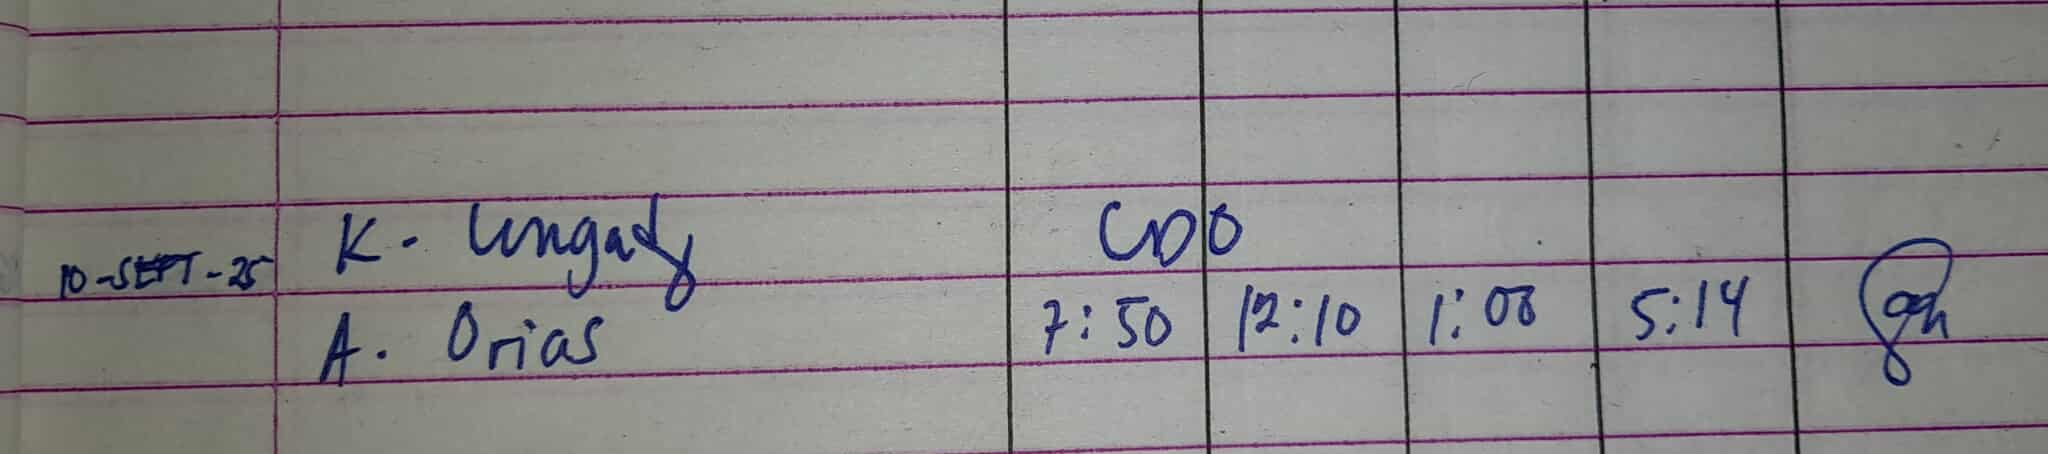 K. Ungady CDO
10-SEPT-25
A. Orias 7:50 12:10 1:08 5:14